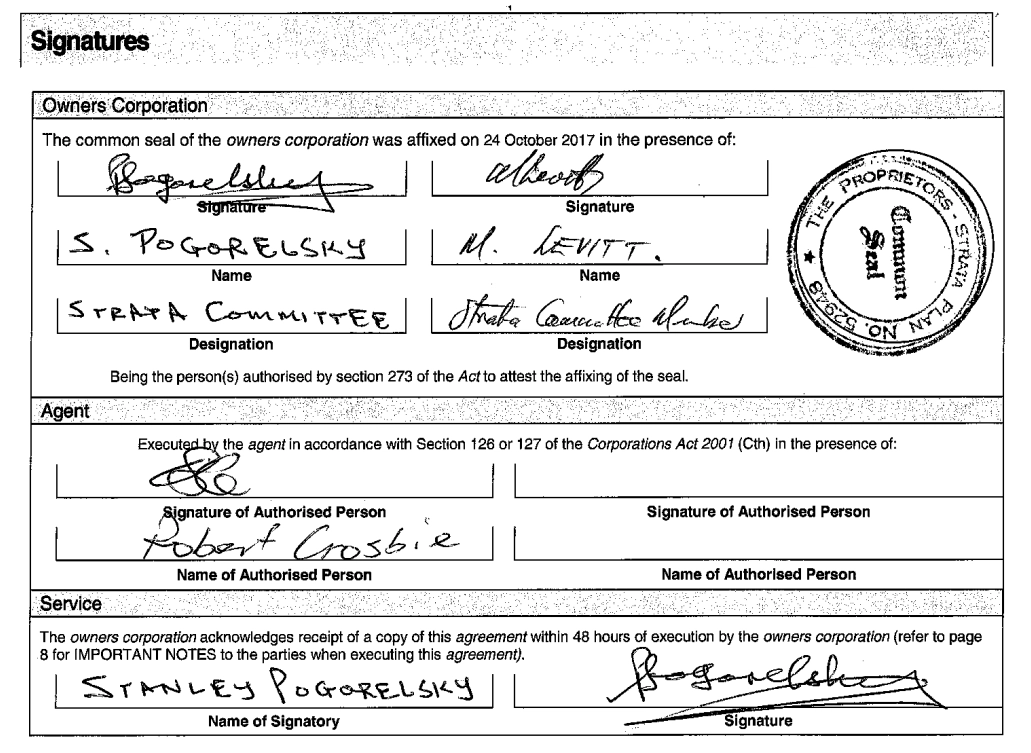 Signatures
Owners Corporation
The common seal of the owners corporation was affixed on 24 October 2017 in the presence of:
Signature
Signature
S. POGORELSKY
M. LEVITT.
Name
Name
STRATA COMMITTEE
Strata Committee Member
Designation
Designation
THE PROPRIETORS - STRATA PLAN NO. 52948 ★
Common
Seal
Being the person(s) authorised by section 273 of the Act to attest the affixing of the seal.
Agent
Executed by the agent in accordance with Section 126 or 127 of the Corporations Act 2001 (Cth) in the presence of:
Signature of Authorised Person
Signature of Authorised Person
Robert Crosbie
Name of Authorised Person
Name of Authorised Person
Service
The owners corporation acknowledges receipt of a copy of this agreement within 48 hours of execution by the owners corporation (refer to page
8 for IMPORTANT NOTES to the parties when executing this agreement).
STANLEY POGORELSKY
Name of Signatory
Signature